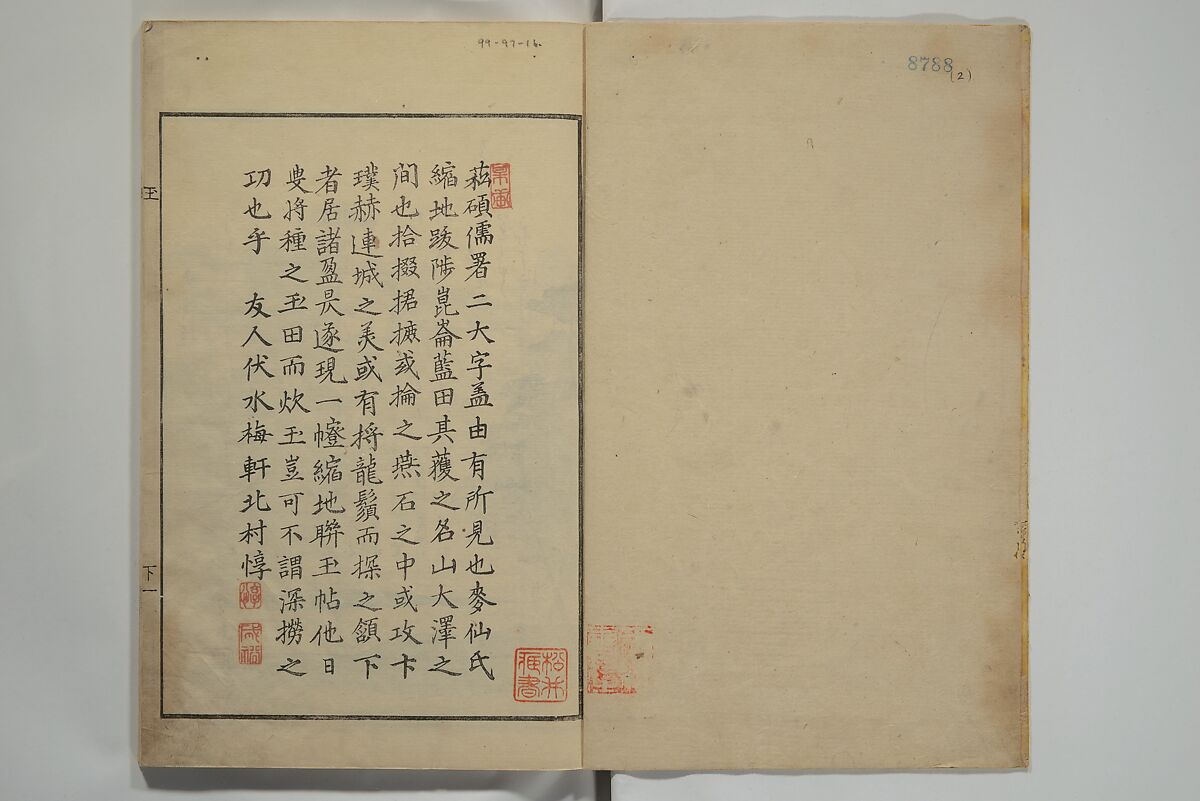 8788
(2)
99-97-16
菘碩儒署二大字盖由有所見也麥仙氏
縮地跋陟崑崙藍田其蒦之名山大澤之
間也拾掇捃摭或掄之燕石之中或攻卞
璞赫連城之美或有捋龍鬚而探之頷下
者居諸盈昃遂現一幢縮地聯玉帖他日
叟將種之玉田而炊玉豈可不謂深撈之
功也乎 友人伏水梅軒北村惇
惇
松井
雅書
玉
下一